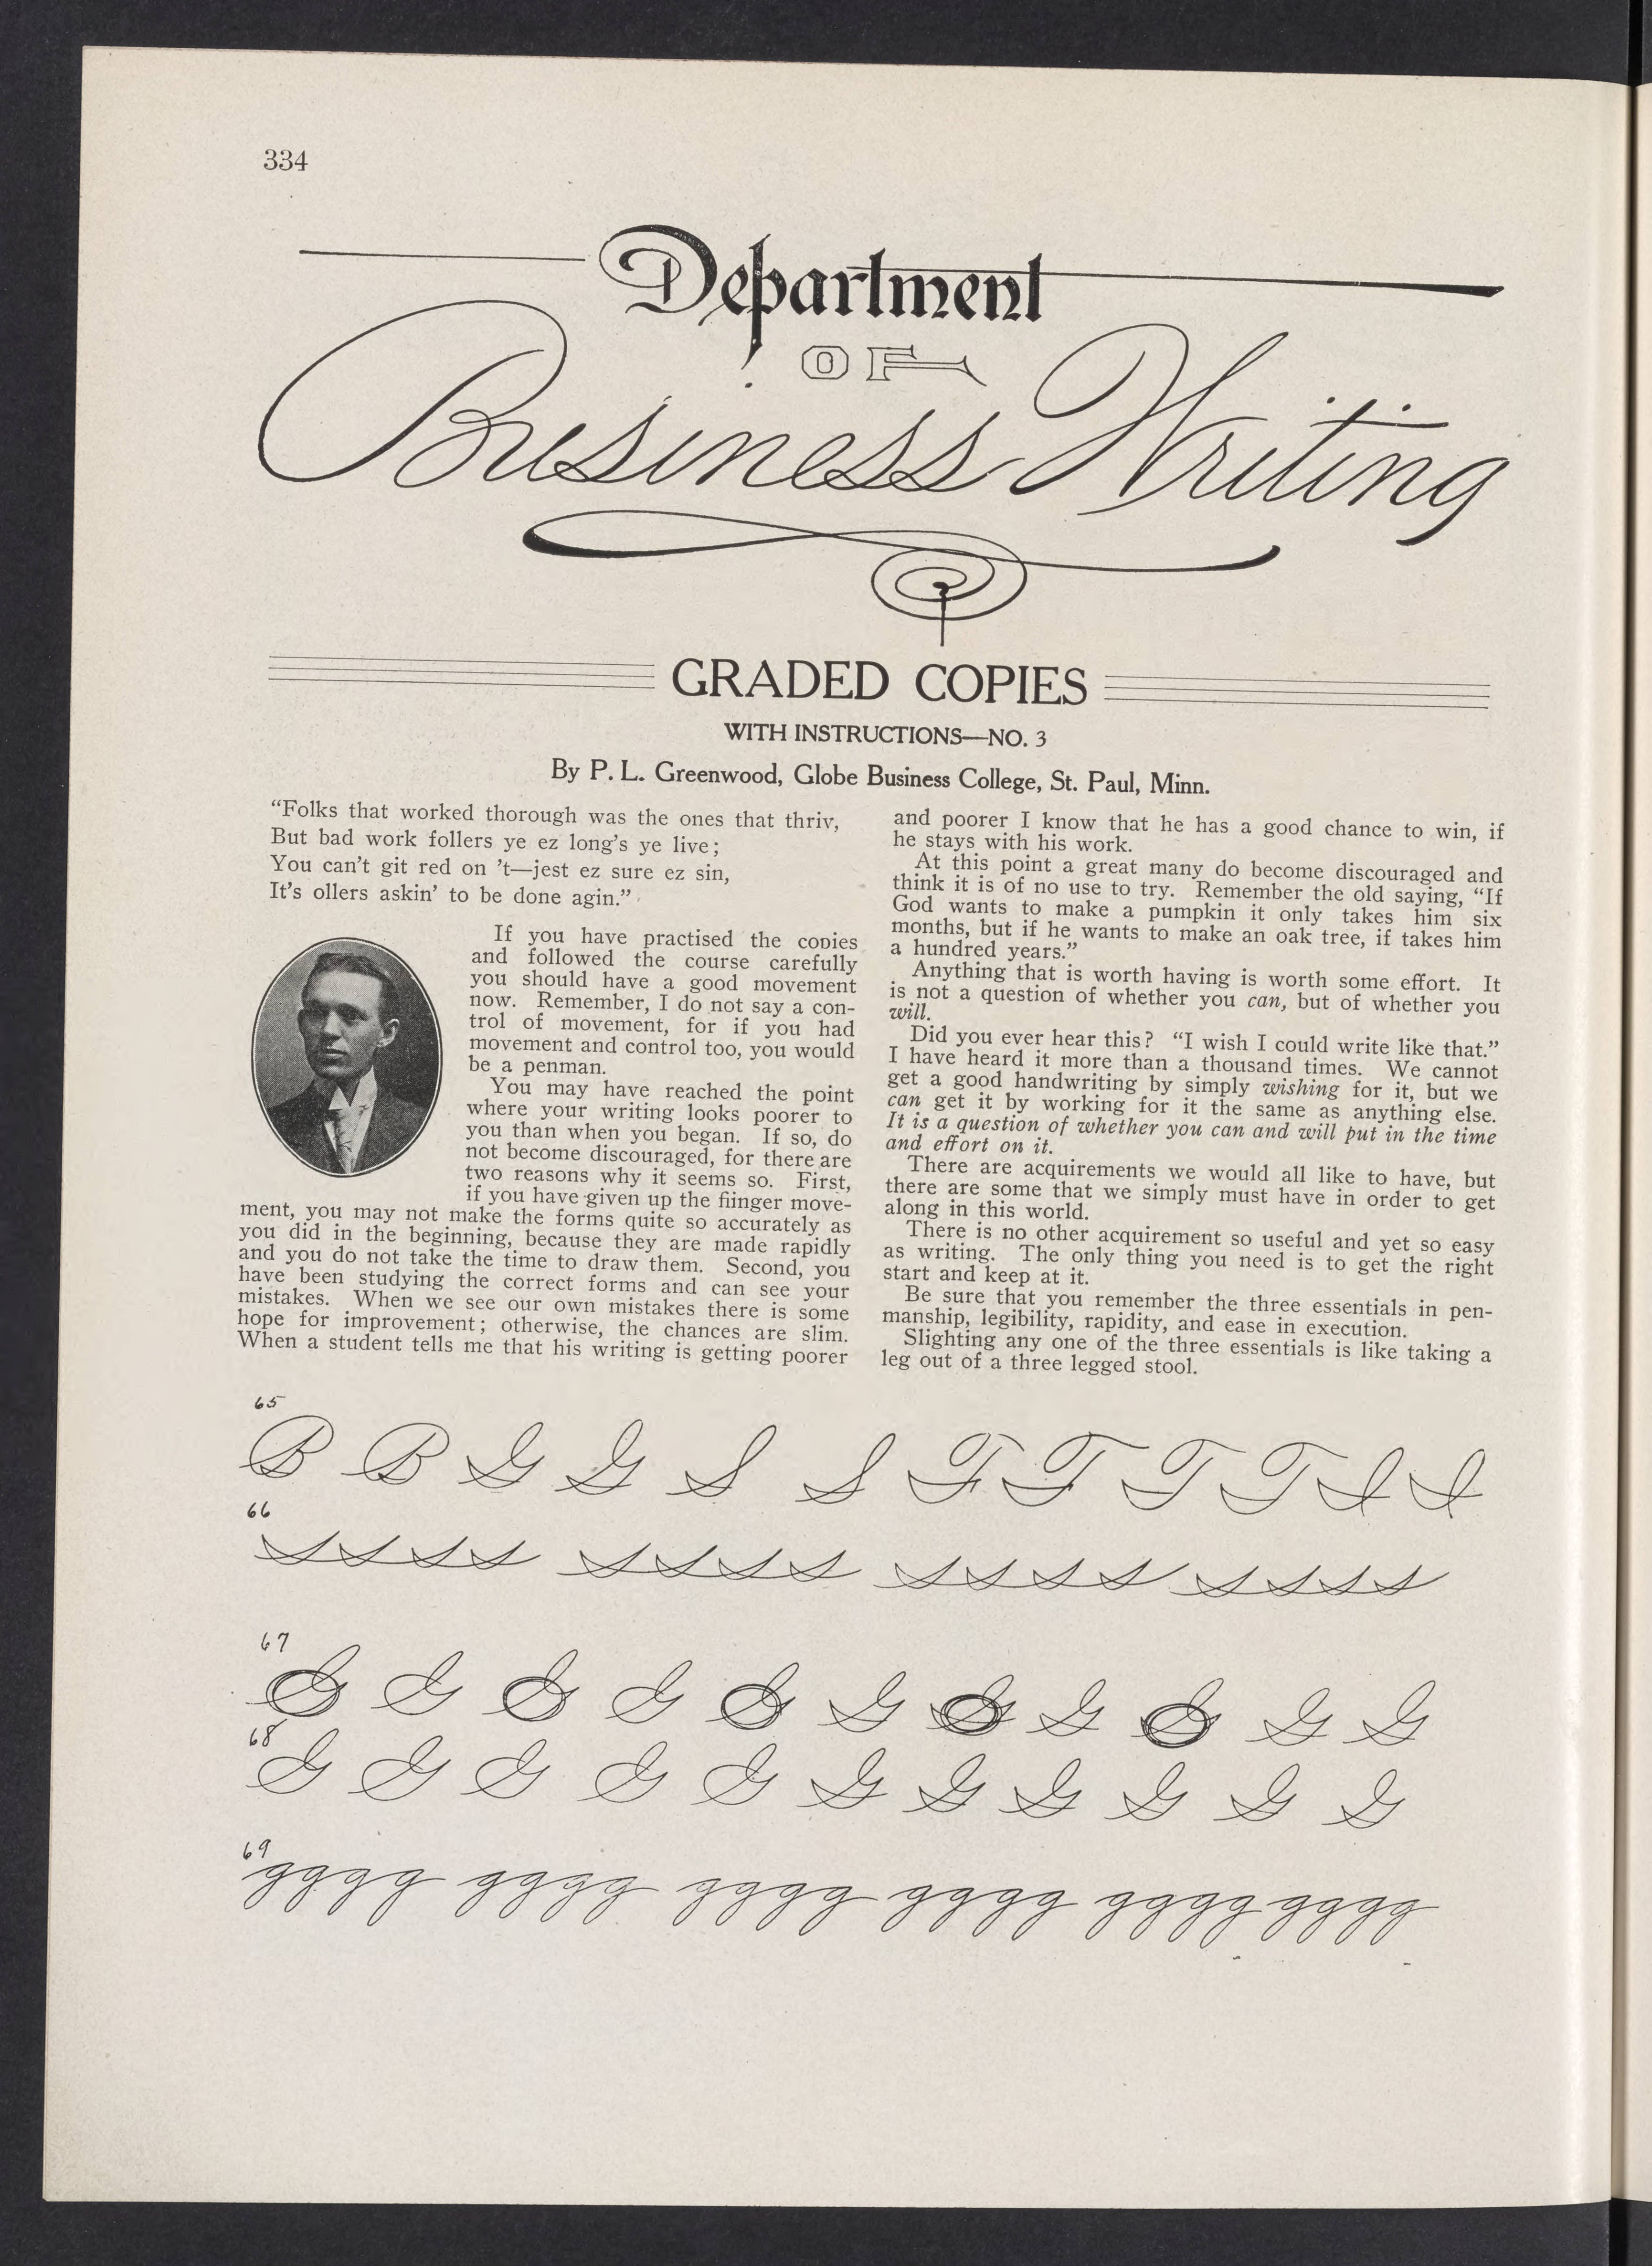 334
Department
OF
Business Writing
GRADED COPIES
WITH INSTRUCTIONS—NO. 3
By P. L. Greenwood, Globe Business College, St. Paul, Minn.
“Folks that worked thorough was the ones that thriv,
But bad work follers ye ez long’s ye live;
You can’t git red on ’t—jest ez sure ez sin,
It’s ollers askin’ to be done agin.”
If you have practised the copies
and followed the course carefully
you should have a good movement
now. Remember, I do not say a con-
trol of movement, for if you had
movement and control too, you would
be a penman.
You may have reached the point
where your writing looks poorer to
you than when you began. If so, do
not become discouraged, for there are
two reasons why it seems so. First,
if you have given up the fiinger move-
ment, you may not make the forms quite so accurately as
you did in the beginning, because they are made rapidly
and you do not take the time to draw them. Second, you
have been studying the correct forms and can see your
mistakes. When we see our own mistakes there is some
hope for improvement; otherwise, the chances are slim.
When a student tells me that his writing is getting poorer
and poorer I know that he has a good chance to win, if
he stays with his work.
At this point a great many do become discouraged and
think it is of no use to try. Remember the old saying, “If
God wants to make a pumpkin it only takes him six
months, but if he wants to make an oak tree, if takes him
a hundred years.”
Anything that is worth having is worth some effort. It
is not a question of whether you can, but of whether you
will.
Did you ever hear this? “I wish I could write like that.”
I have heard it more than a thousand times. We cannot
get a good handwriting by simply wishing for it, but we
can get it by working for it the same as anything else.
It is a question of whether you can and will put in the time
and effort on it.
There are acquirements we would all like to have, but
there are some that we simply must have in order to get
along in this world.
There is no other acquirement so useful and yet so easy
as writing. The only thing you need is to get the right
start and keep at it.
Be sure that you remember the three essentials in pen-
manship, legibility, rapidity, and ease in execution.
Slighting any one of the three essentials is like taking a
leg out of a three legged stool.
65
B B G G S S F F T T I I
66
s s s s s s s s s s s s s s s s
67
G G G G G G G G G G G
68
G G G G G G G G G G G
69
gggg gggg gggg gggg gggg gggg